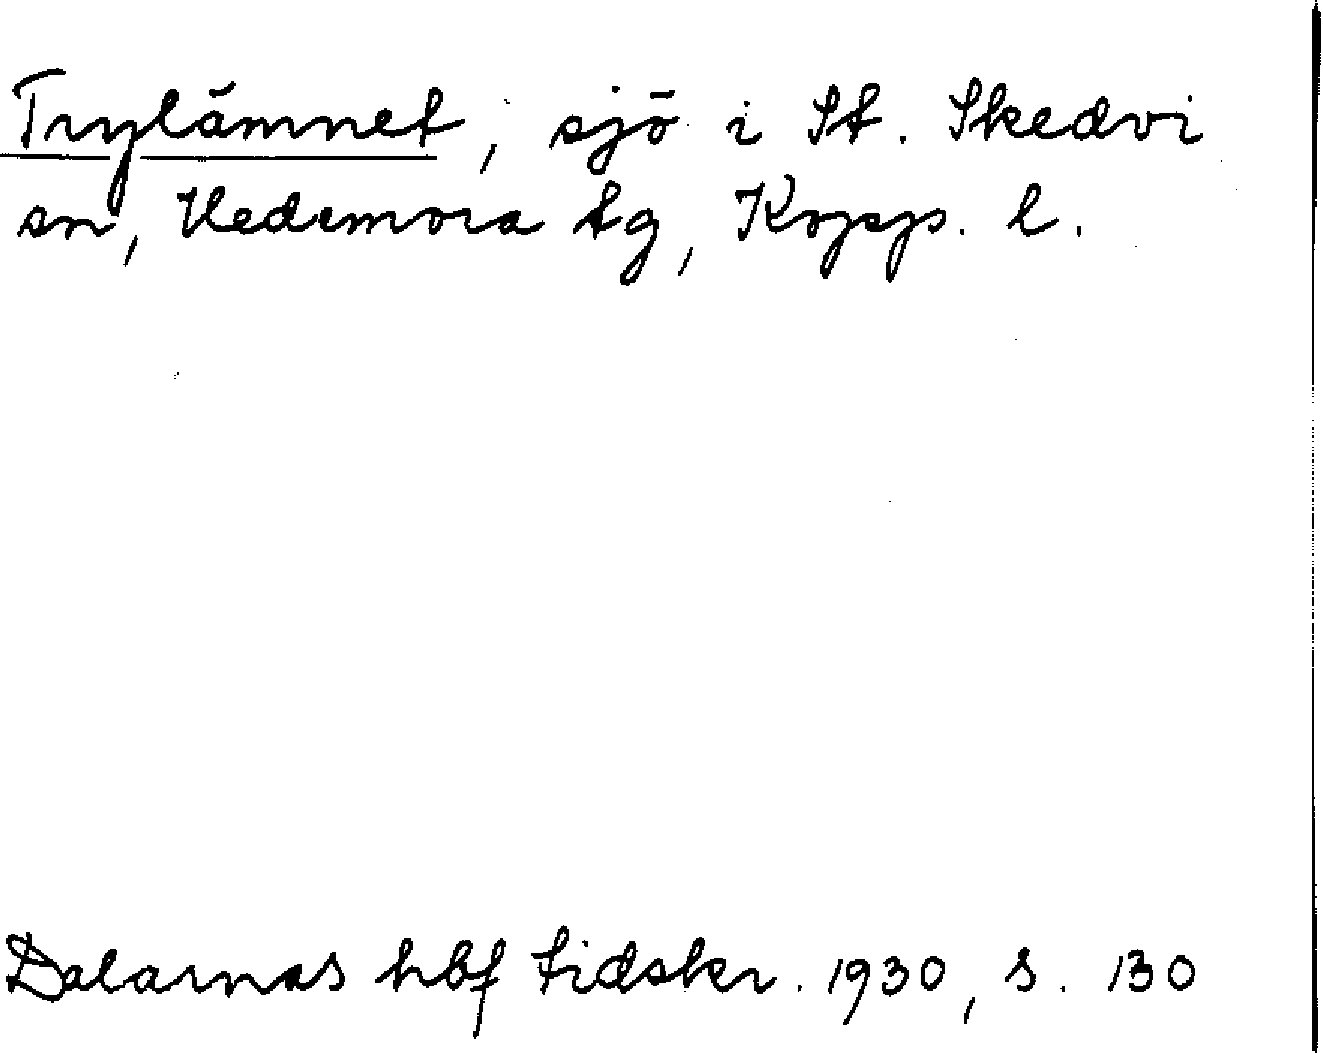 Trylämnet, sjö i St. Skedvi
sn, Hedemora tg, Kopp. l.
Dalarnas hbf tidskr. 1930, s. 130